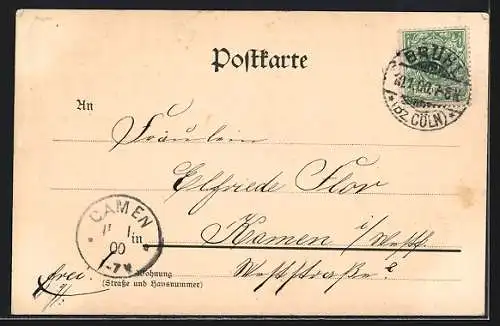 Postkarte
BRÜHL
(BZ. CÖLN)
An
Fräulein
Elfriede Flor
in
Kamen i/Westf.
Weststraße
CAMEN
00
frei.
Wohnung
(Straße und Hausnummer)